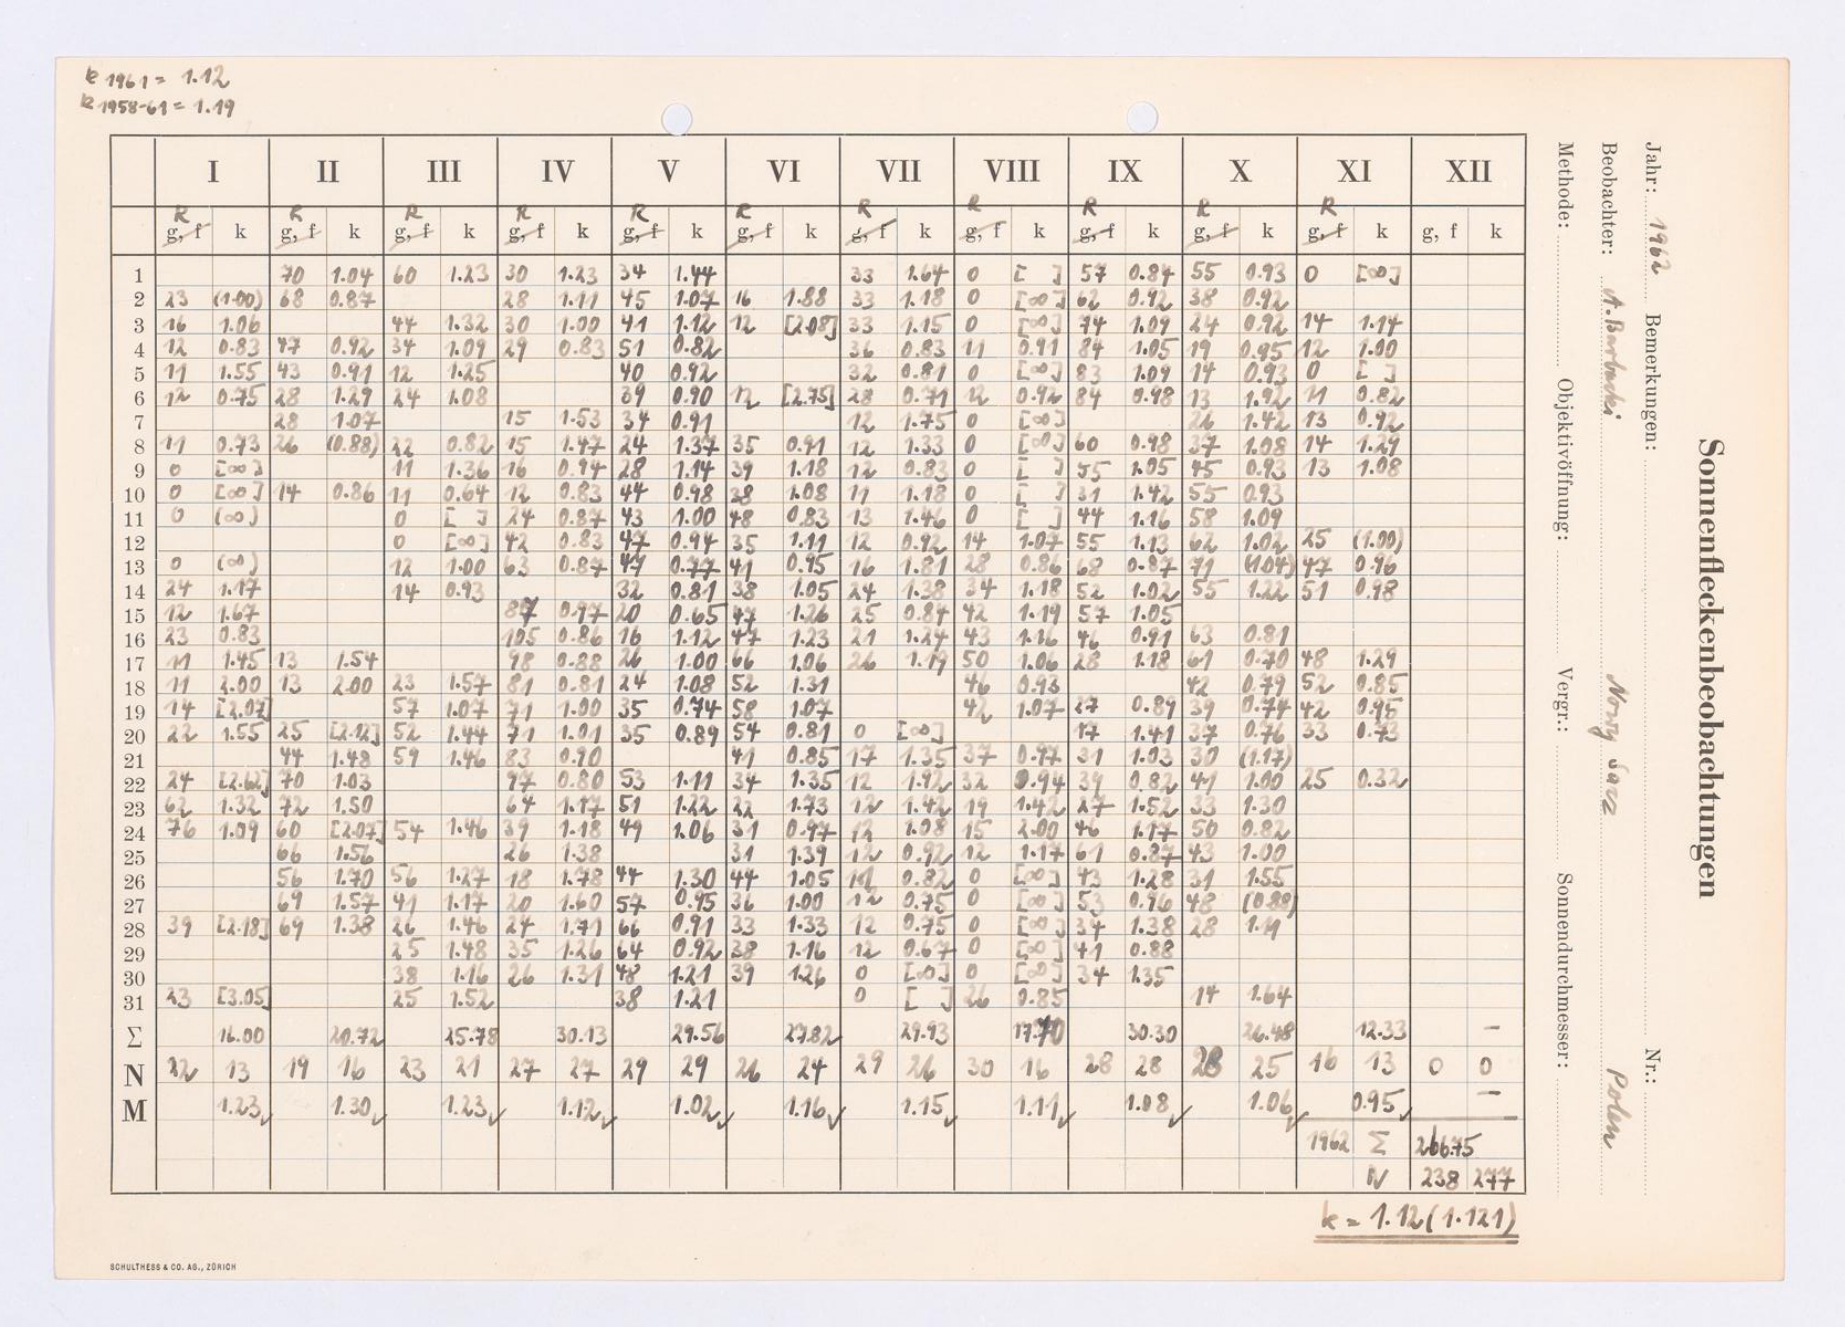 k 1961 = 1.12
k 1958-61 = 1.19
I II III IV V VI VII VIII IX X XI XII
R R R R R R R R R R R
g, f k g, f k g, f k g, f k g, f k g, f k g, f k g, f k g, f k g, f k g, f k g, f k
1 70 1.04 60 1.23 30 1.23 34 1.44 33 1.64 0 [ ] 57 0.84 55 0.93 0 [∞]
2 23 (1.00) 68 0.87 28 1.11 45 1.07 16 1.88 33 1.18 0 [∞] 62 0.92 38 0.92
3 16 1.06 44 1.32 30 1.00 41 1.12 12 [2.08] 33 1.15 0 [∞] 74 1.09 24 0.92 14 1.14
4 12 0.83 47 0.92 34 1.09 29 0.83 51 0.82 36 0.83 11 0.91 84 1.05 19 0.95 12 1.00
5 11 1.55 43 0.91 12 1.25 40 0.92 32 0.81 0 [∞] 83 1.09 14 0.93 0 [ ]
6 12 0.75 28 1.29 24 1.08 39 0.90 12 [2.75] 28 0.71 12 0.92 84 0.98 13 1.92 11 0.82
7 28 1.07 15 1.53 34 0.91 12 1.75 0 [∞] 26 1.42 13 0.92
8 11 0.73 26 (0.88) 22 0.82 15 1.47 24 1.37 35 0.91 12 1.33 0 [∞] 60 0.98 37 1.08 14 1.29
9 0 [∞] 11 1.36 16 0.94 28 1.14 39 1.18 12 0.83 0 [ ] 55 1.05 45 0.93 13 1.08
10 0 [∞] 14 0.86 11 0.64 12 0.83 44 0.98 38 1.08 11 1.18 0 [ ] 31 1.42 55 0.93
11 0 (∞) 0 [ ] 24 0.87 43 1.00 48 0.83 13 1.46 0 [ ] 44 1.16 58 1.09
12 0 [∞] 42 0.83 47 0.94 35 1.11 12 0.92 14 1.07 55 1.13 62 1.02 25 (1.00)
13 0 (∞) 12 1.00 63 0.87 47 0.77 41 0.95 16 1.81 28 0.86 68 0.87 71 (1.04) 47 0.96
14 24 1.17 14 0.93 32 0.81 38 1.05 24 1.38 34 1.18 52 1.02 55 1.22 51 0.98
15 12 1.67 87 0.97 20 0.65 47 1.26 25 0.84 42 1.19 57 1.05
16 23 0.83 105 0.86 16 1.12 47 1.23 21 1.24 43 1.16 46 0.91 63 0.81
17 11 1.45 13 1.54 98 0.88 26 1.00 66 1.06 26 1.19 50 1.06 28 1.18 61 0.70 48 1.29
18 11 2.00 13 2.00 23 1.57 81 0.81 24 1.08 52 1.31 46 0.93 42 0.79 52 0.85
19 14 [2.07] 57 1.07 71 1.00 35 0.74 58 1.07 42 1.07 27 0.89 39 0.74 42 0.95
20 22 1.55 25 [2.12] 52 1.44 71 1.01 35 0.89 54 0.81 0 [∞] 17 1.41 37 0.76 33 0.73
21 44 1.48 59 1.46 83 0.90 41 0.85 17 1.35 37 0.97 31 1.03 30 (1.17)
22 24 [2.62] 70 1.03 97 0.80 53 1.11 34 1.35 12 1.92 32 0.94 39 0.82 41 1.00 25 0.32
23 62 1.32 72 1.50 64 1.17 51 1.22 22 1.73 12 1.42 19 1.42 27 1.52 33 1.30
24 76 1.09 60 [2.07] 54 1.46 39 1.18 49 1.06 31 0.97 12 1.08 15 2.00 46 1.17 50 0.82
25 66 1.56 26 1.38 31 1.39 12 0.92 12 1.17 61 0.87 43 1.00
26 56 1.70 56 1.27 18 1.78 44 1.30 44 1.05 11 0.82 0 [∞] 43 1.28 31 1.55
27 69 1.57 41 1.17 20 1.60 57 0.95 36 1.00 12 0.75 0 [∞] 53 0.96 48 (0.88)
28 39 [2.18] 69 1.38 26 1.46 24 1.71 66 0.91 33 1.33 12 0.75 0 [∞] 34 1.38 28 1.11
29 25 1.48 35 1.26 64 0.92 38 1.16 12 0.67 0 [∞] 41 0.88
30 38 1.16 26 1.31 48 1.21 39 1.26 0 [∞] 0 [∞] 34 1.35
31 23 [3.05] 25 1.52 38 1.21 0 [ ] 26 0.85 14 1.64
Σ 16.00 20.72 25.78 30.13 29.56 27.82 29.93 17.70 30.30 26.48 12.33 –
N 22 13 19 16 23 21 27 27 29 29 26 24 29 26 30 16 28 28 28 25 16 13 0 0
M 1.23 1.30 1.23 1.12 1.02 1.16 1.15 1.11 1.08 1.06 0.95 –
1962 Σ 266.75
N 238 277
k = 1.12 (1.121)
SCHULTHESS & CO. AG., ZÜRICH
Sonnenfleckenbeobachtungen
Jahr: 1962 Bemerkungen: Nr.:
Beobachter: Nowy Sacz Polen
Methode: Objektivöffnung: Vergr.: Sonnendurchmesser: